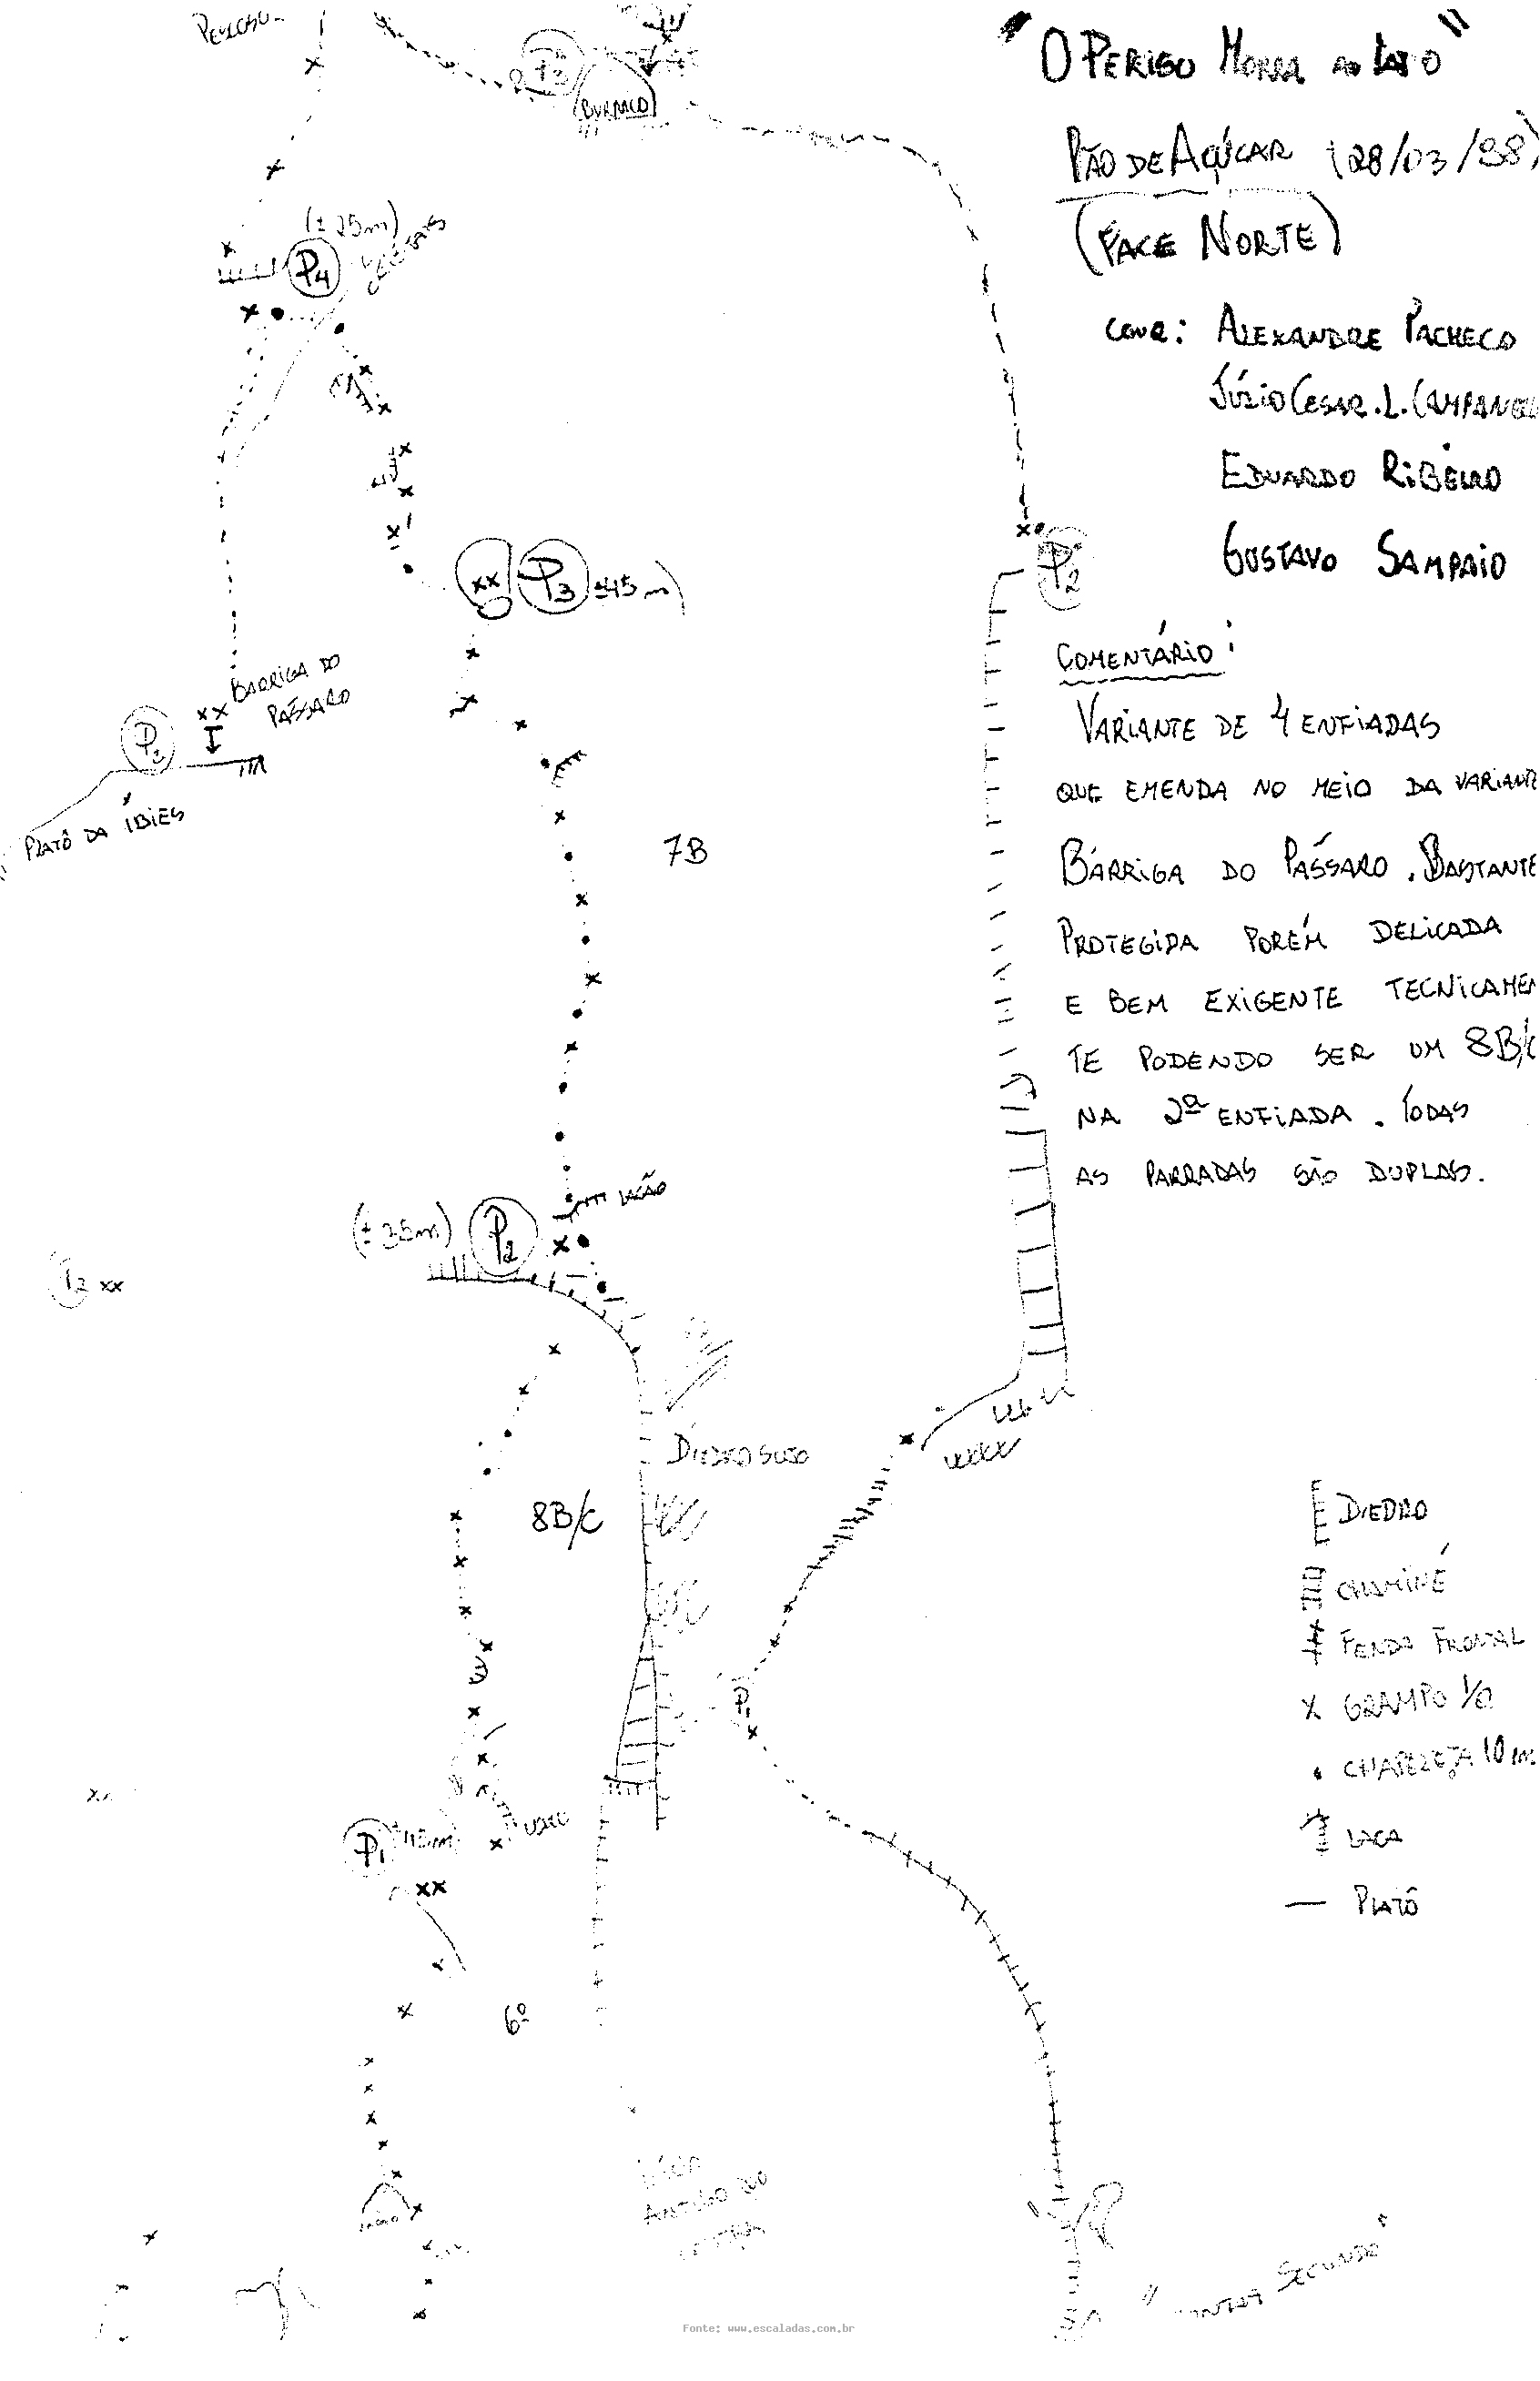 "O PERIGO MORA AO LADO"
PÃO DE AÇÚCAR (28/03/98)
(FACE NORTE)
CONQ: ALEXANDRE PACHECO
JÚLIO CESAR. L. CAMPANEL
EDUARDO RIBEIRO
GUSTAVO SAMPAIO
COMENTÁRIO:
VARIANTE DE 4 ENFIADAS
QUE EMENDA NO MEIO DA VARIANTE
BARRIGA DO PÁSSARO. BASTANTE
PROTEGIDA PORÉM DELICADA
E BEM EXIGENTE TECNICAMEN
TE PODENDO SER UM 8B/C
NA 2ª ENFIADA. TODAS
AS PARRADAS SÃO DUPLAS.
P3
(BURACO)
(± 25m)
P4
P3 ±45m)
P2
BARRIGA DO
PÁSSARO
P3
PLATÔ DA IBIES
7B
LACÃO
(± 35m) P2
P2
DIEDRO SUJO
8B/C
P1
P1 ±45m
6º
DIEDRO
CHAMINÉ
FENDA FRONTAL
GRAMPO 1/2
CHAPELETA 10 m
LACA
PLATÔ
ANTIGO
SEGUNDO"
Fonte: www.escaladas.com.br